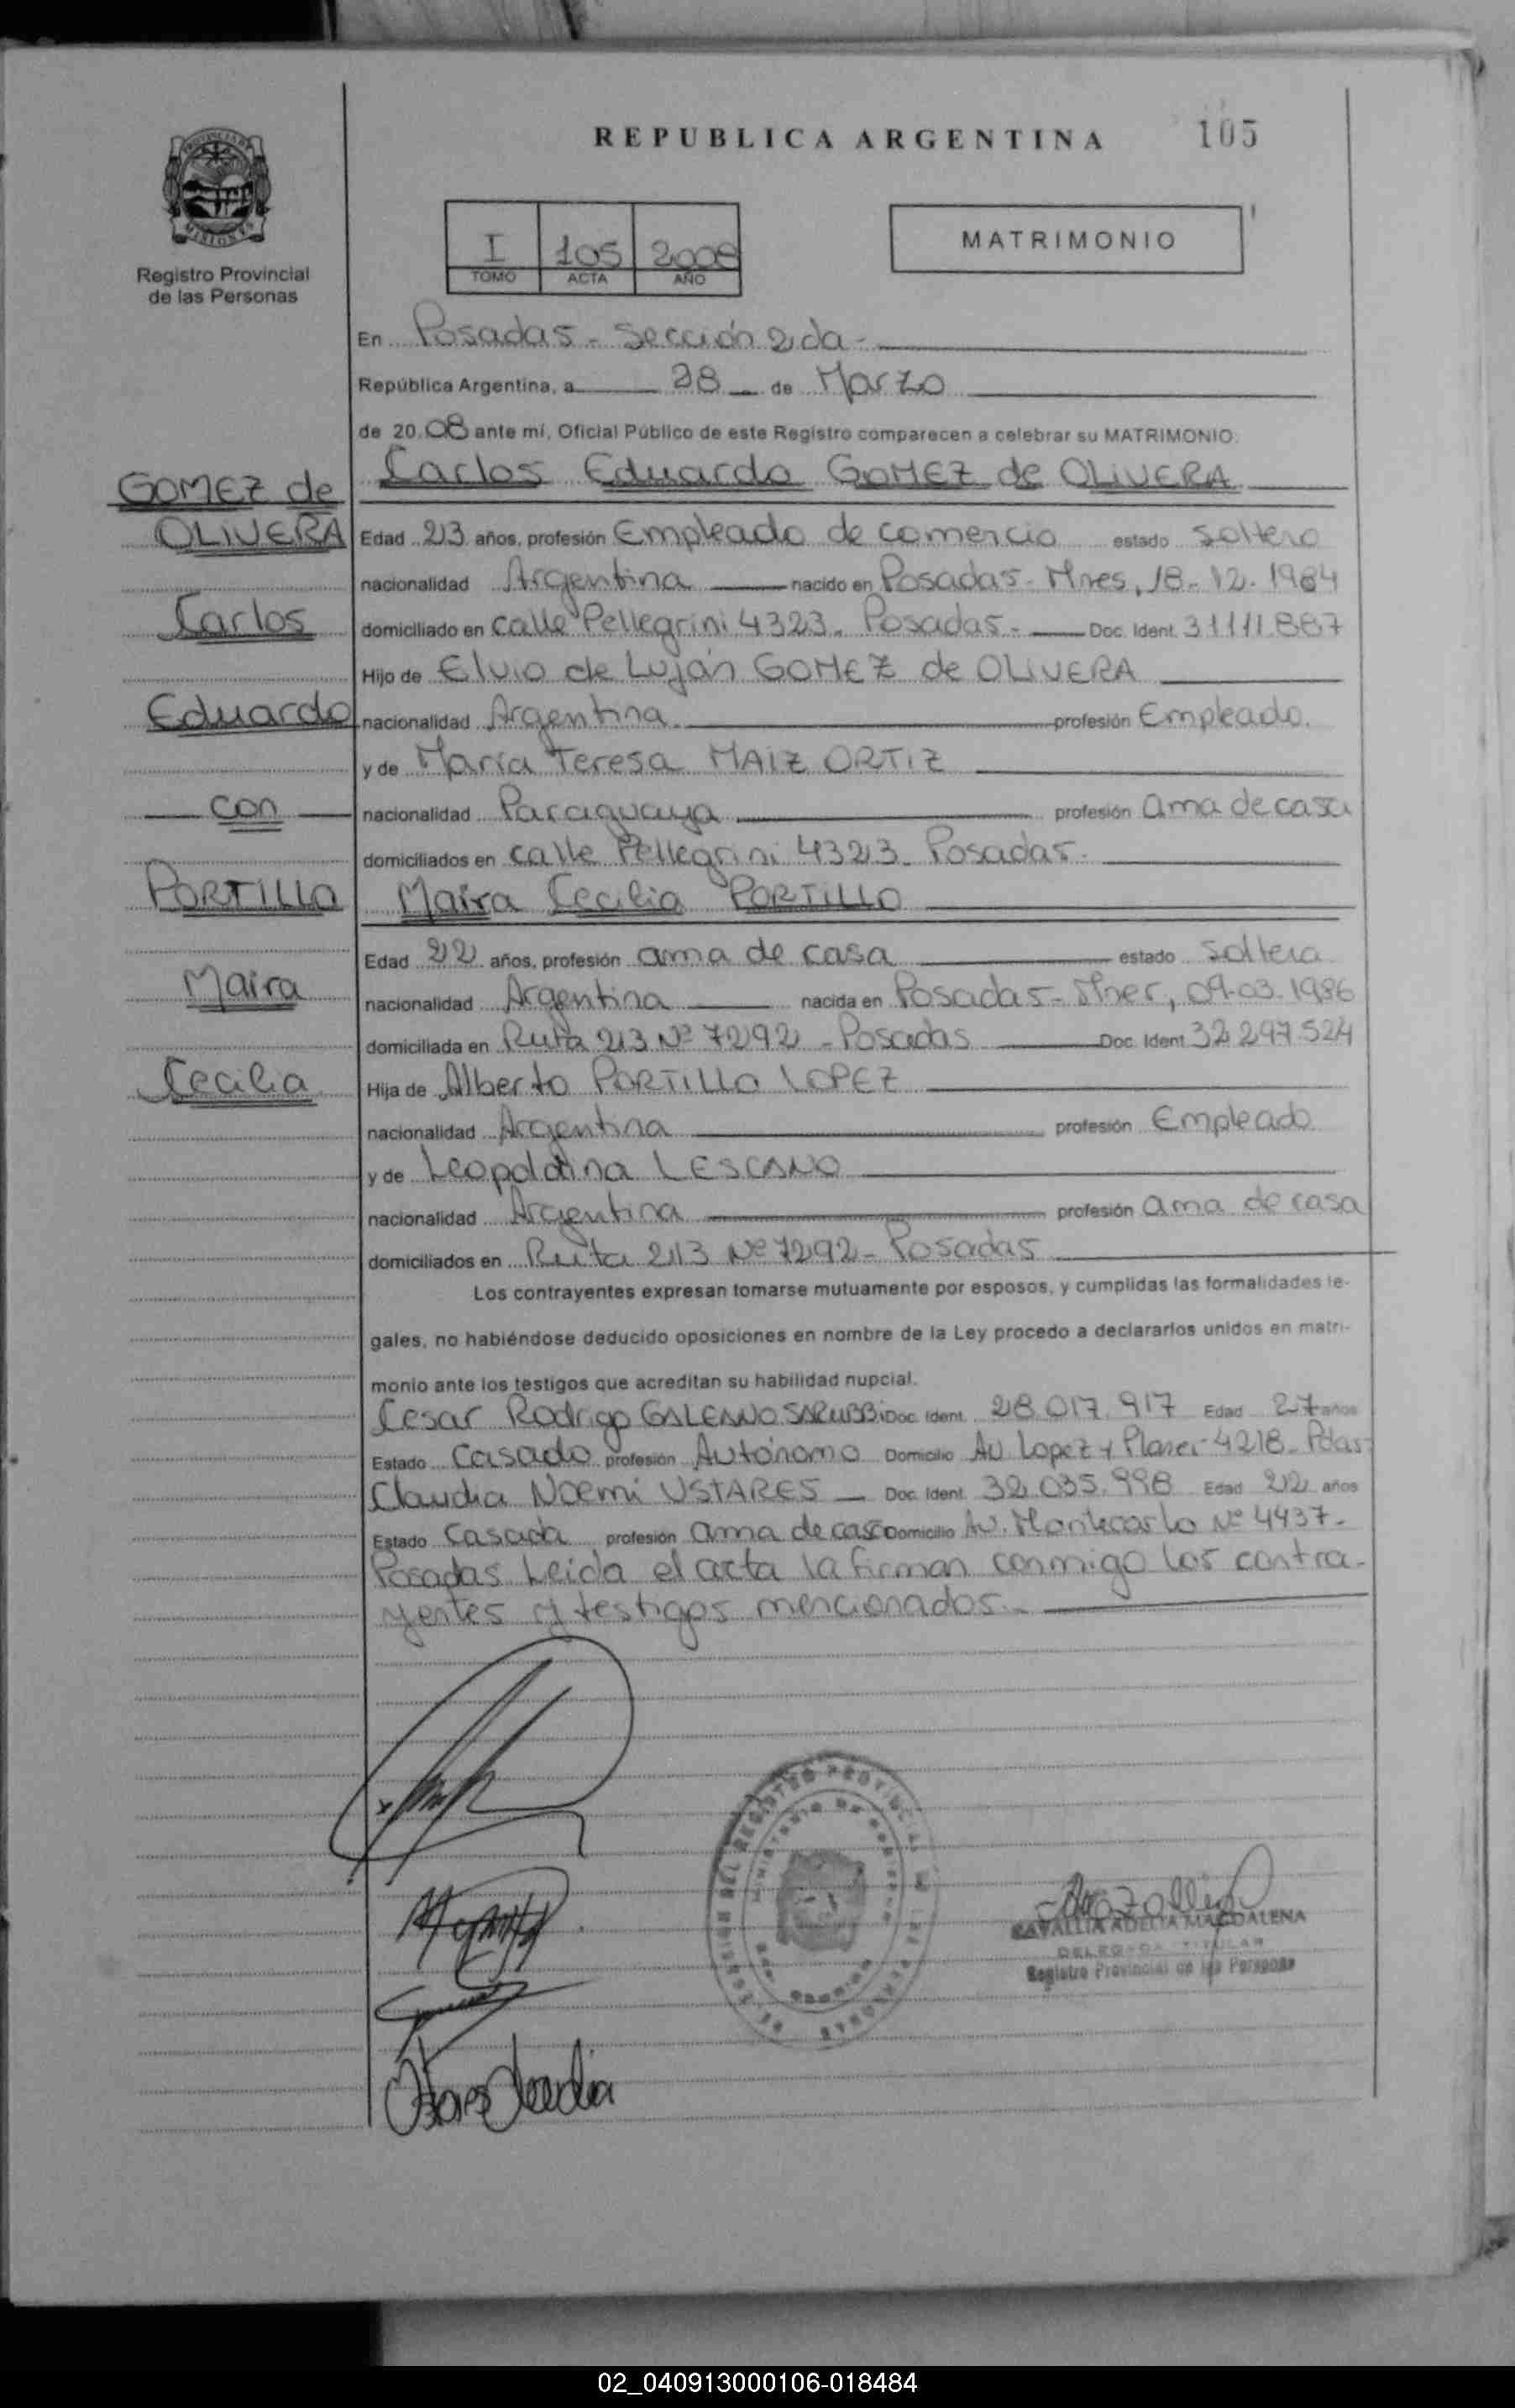 REPUBLICA ARGENTINA
105
PROVINCIA DE
MISIONES
Registro Provincial
de las Personas
I 105 2008
TOMO ACTA AÑO
MATRIMONIO
En Posadas - Sección 2da -
República Argentina, a 28 de Marzo
de 2008 ante mí, Oficial Público de este Registro comparecen a celebrar su MATRIMONIO.
Carlos Eduardo GOMEZ de OLIVERA
GOMEZ de
OLIVERA
Edad 23 años, profesión Empleado de comercio estado soltero
nacionalidad Argentina nacido en Posadas - Mnes, 18-12-1984
Carlos
domiciliado en calle Pellegrini 4323. Posadas - Doc. Ident. 31.111.887
Hijo de Elvio de Luján GOMEZ de OLIVERA
Eduardo
nacionalidad Argentina profesión Empleado.
y de María Teresa MAIZ ORTIZ
con
nacionalidad Paraguaya profesión ama de casa
domiciliados en calle Pellegrini 4323. Posadas -
PORTILLO
Maira Cecilia PORTILLO
Edad 22 años, profesión ama de casa estado soltera
Maira
nacionalidad Argentina nacida en Posadas - Mnes, 09-03-1986
domiciliada en Ruta 213 Nº 7292 - Posadas Doc. Ident. 32.297.524
Cecilia
Hija de Alberto PORTILLO LOPEZ
nacionalidad Argentina profesión Empleado
y de Leopoldina LESCANO
nacionalidad Argentina profesión ama de casa
domiciliados en Ruta 213 Nº 7292 - Posadas
Los contrayentes expresan tomarse mutuamente por esposos, y cumplidas las formalidades le-
gales, no habiéndose deducido oposiciones en nombre de la Ley procedo a declararlos unidos en matri-
monio ante los testigos que acreditan su habilidad nupcial.
Cesar Rodrigo GALEANO SARUBBI Doc. Ident. 28.017.917 Edad 27 años
Estado Casado profesión Autónomo Domicilio Av. Lopez y Planes 4218. Pdas-
Claudia Noemi USTARES - Doc. Ident. 32.035.998 Edad 22 años
Estado Casada profesión ama de casa Domicilio Av. Montecarlo Nº 4437 -
Posadas Leida el acta la firman conmigo los contra-
yentes y testigos mencionados. -
ADELIA MAGDALENA
DELEGADA TITULAR
Registro Provincial de las Personas
02_040913000106-018484